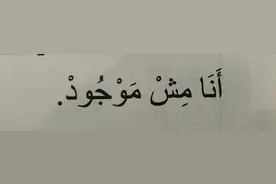 أَنَا مِشْ مَوْجُودْ.